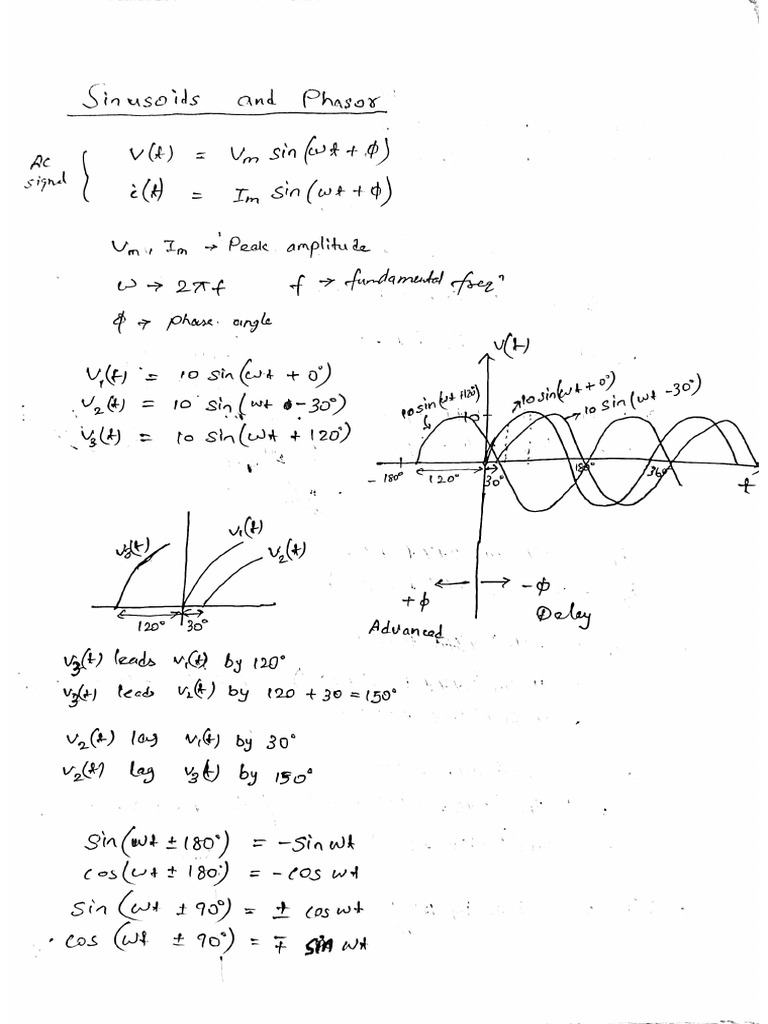 Sinusoids and Phasor
AC signal { v(t) = Vm sin(ωt + φ)
i(t) = Im sin(ωt + φ)
Vm, Im → Peak amplitude
ω → 2πf f → fundamental freqⁿ
φ → phase angle
V₁(t) = 10 sin(ωt + 0°)
V₂(t) = 10 sin(ωt - 30°)
V₃(t) = 10 sin(ωt + 120°)
v(t)
10 sin(ωt + 120°)
10
10 sin(ωt + 0°)
10 sin(ωt - 30°)
-180° 120° 30° 180° 360° t
+φ ← → -φ
Advanced Delay
v₃(t) v₁(t) v₂(t)
120° 30°
v₃(t) leads v₁(t) by 120°
v₃(t) leads v₂(t) by 120 + 30 = 150°
v₂(t) lag v₁(t) by 30°
v₂(t) lag v₃(t) by 150°
sin(ωt ± 180°) = - sin ωt
cos(ωt ± 180°) = - cos ωt
sin(ωt ± 90°) = ± cos ωt
cos(ωt ± 90°) = ∓ sin ωt